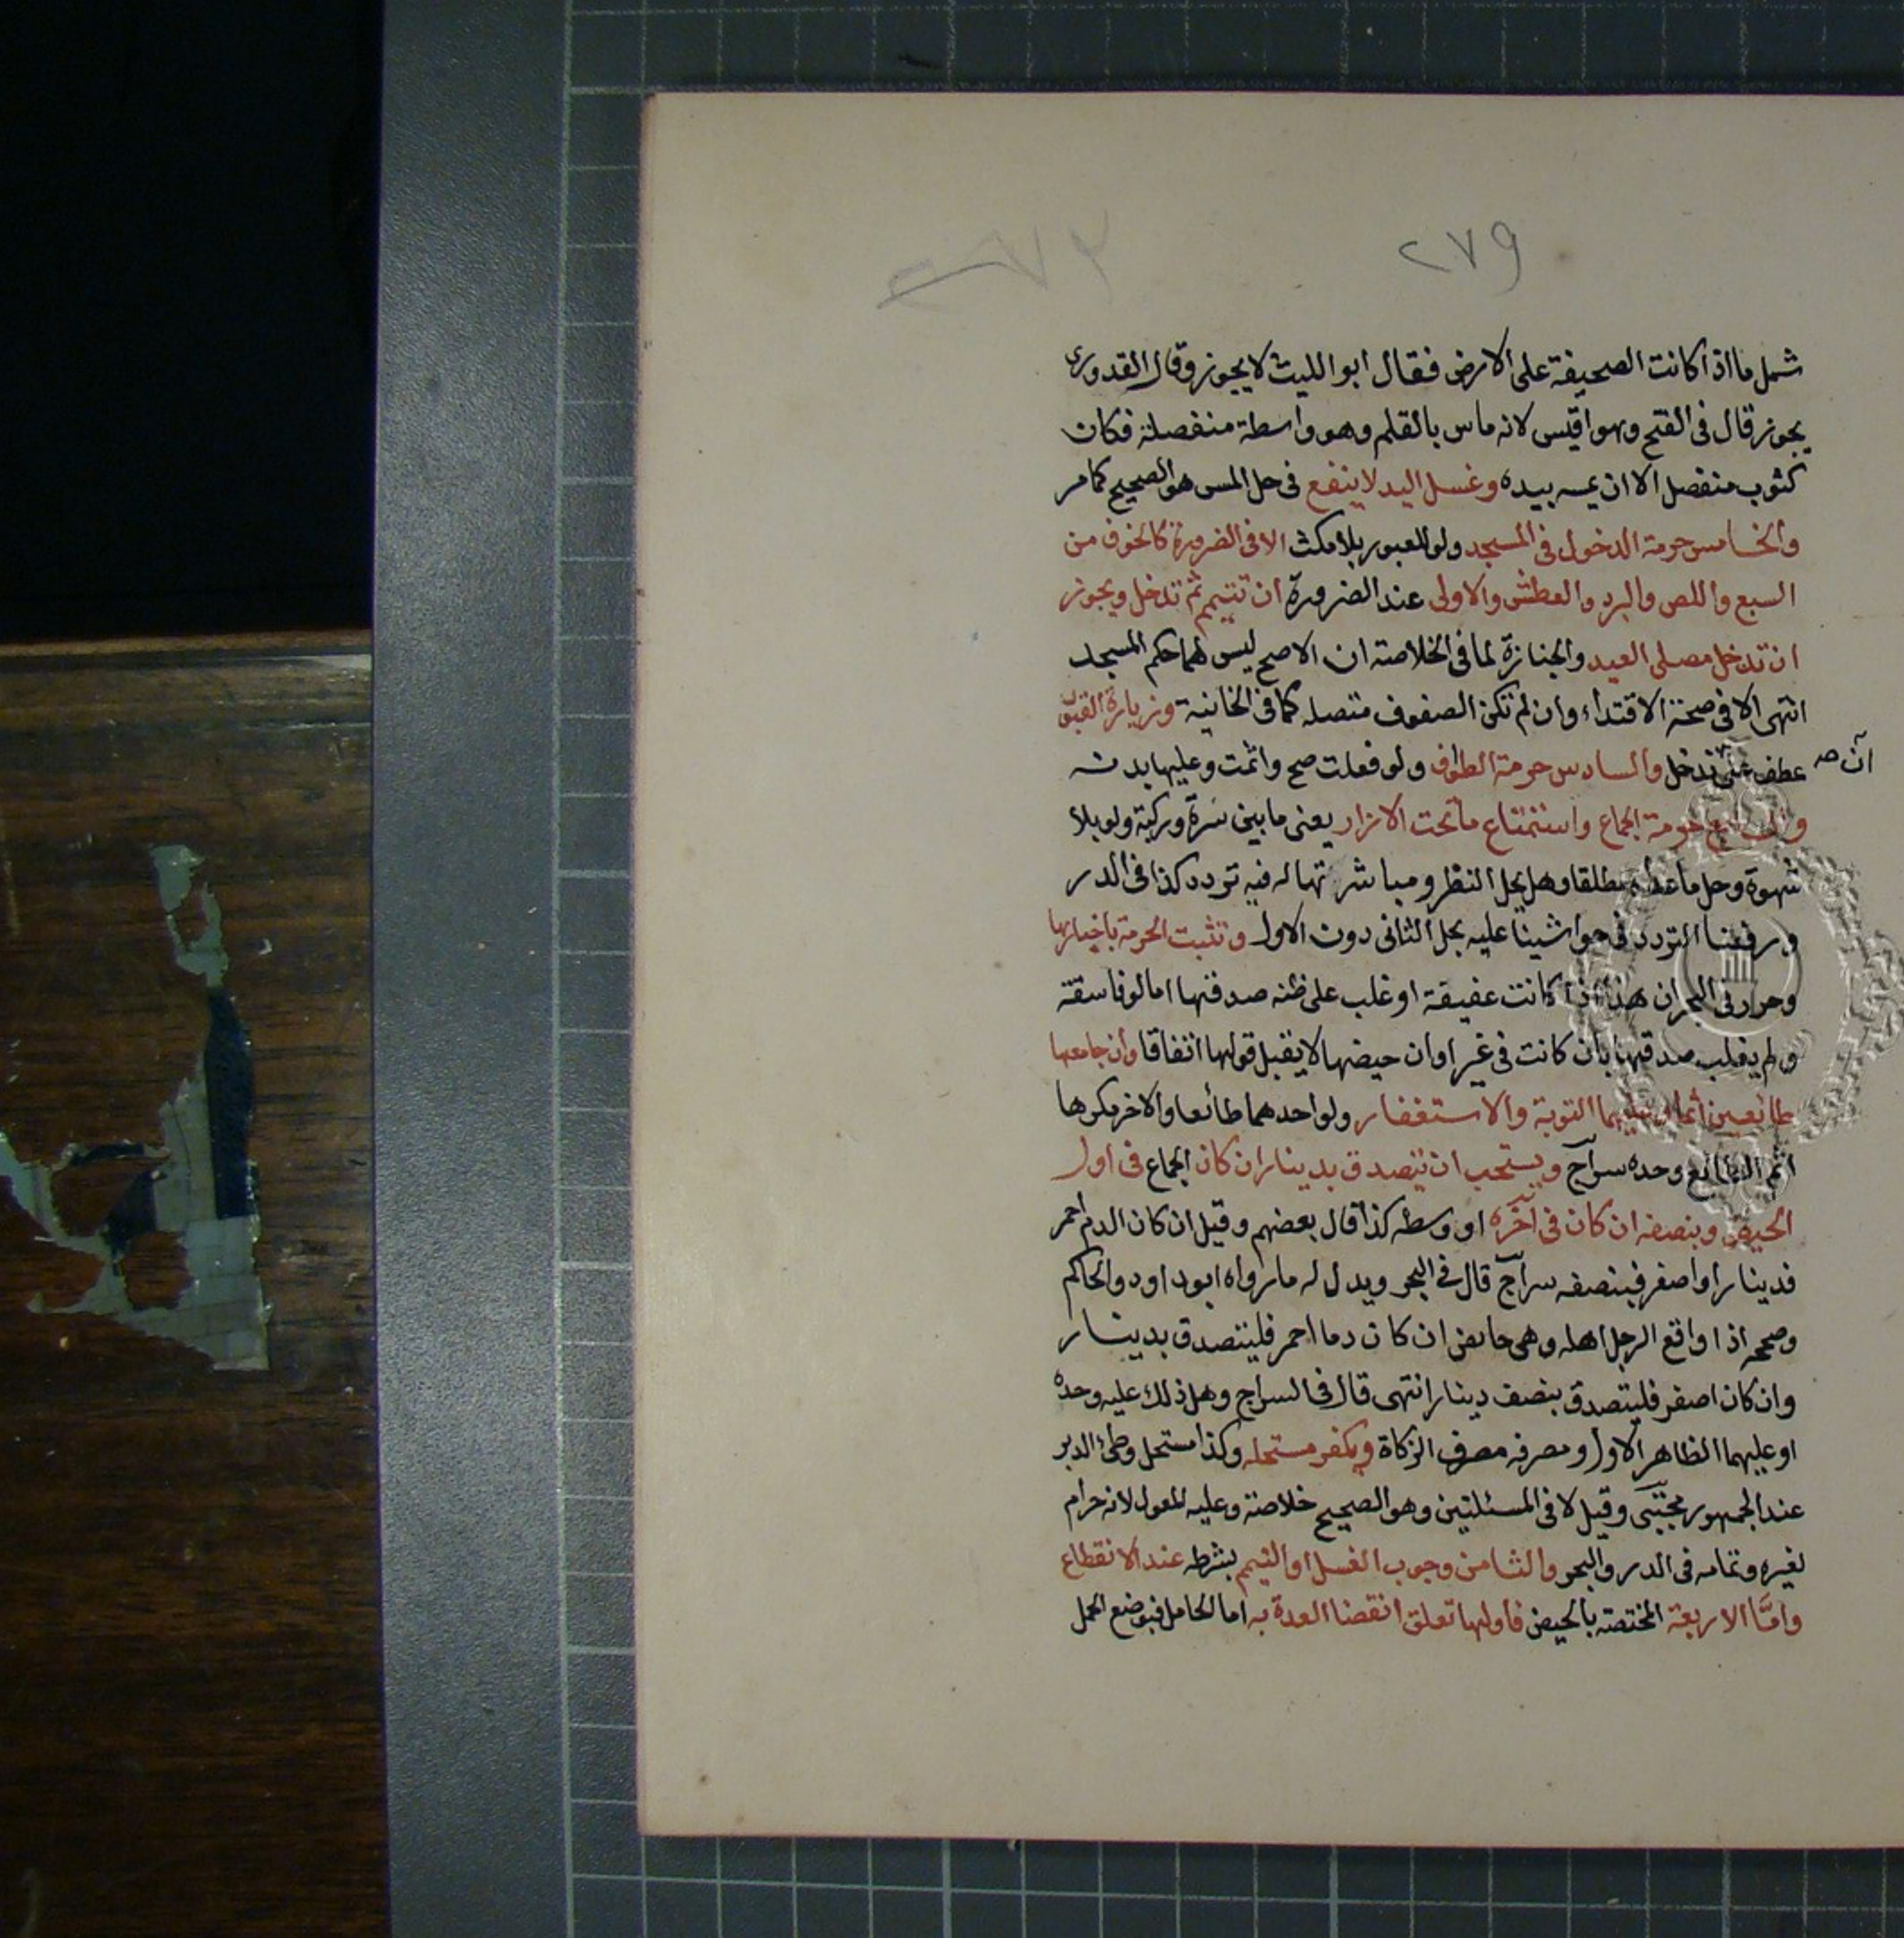 ٢٧٩
شمل ما اذا كانت الصحيفة على الارض فقال ابو الليث لا يجوز وقال القدورى
يجوز قال فى الفتح وهو اقيس لانه ماس بالقلم وهو واسطة منفصلة فكان
كثوب منفصل الا ان يمسه بيده وغسل اليد لا ينفع فى حل المس هو الصحيح كما مر
والخامس حرمة الدخول فى المسجد ولو للعبور بلا مكث الا فى الضرورة كالخوف من
السبع واللص والبرد والعطش والاولى عند الضرورة ان تتيمم ثم تدخل ويجوز
ان تدخل مصلى العيد والجنازة لما فى الخلاصة ان الاصح ليس لهما حكم المسجد
انتهى الا فى صحة الاقتداء وان لم تكن الصفوف متصله كما فى الخانية وزيارة القبور
عطف على تدخل والسادس حرمة الطواف ولو فعلت صح واثمت وعليها بدنه
ان صح
والسابع حرمة الجماع واستمتاع ما تحت الازار يعنى ما بين سرة وركبة ولو بلا
شهوة وحل ما عداه مطلقا وهل يحل النظر ومباشرتها له فيه تردد كذا فى الدر
ورفعنا التردد فى حواشينا عليه بحل الثانى دون الاول وتثبت الحرمة باخبارها
وحرر فى البحر ان هذا اذا كانت عفيفة او غلب على ظنه صدقها اما لو فاسقة
ولم يغلب صدقها بان كانت فى غير اوان حيضها لا يقبل قولها اتفاقا وان جامعها
طائعين أثما وعليهما التوبة والاستغفار ولو احدهما طائعا والاخر مكرها
اثم الطائع وحده سراج ويستحب ان يتصدق بدينار ان كان الجماع فى اول
الحيض وبنصفه ان كان فى آخره او وسطه كذا قال بعضهم وقيل ان كان الدم احمر
فدينار او اصفر فبنصفه سراج قال فى البحر ويدل له ما رواه ابو داود والحاكم
وصححه اذا واقع الرجل اهله وهى حائض ان كان دما احمر فليتصدق بدينار
وان كان اصفر فليتصدق بنصف دينار انتهى قال فى السراج وهل ذلك عليه وحده
او عليهما الظاهر الاول ومصرفه مصرف الزكاة ويكفر مستحله وكذا مستحل وطئ الدبر
عند الجمهور مجتبى وقيل لا فى المسئلتين وهو الصحيح خلاصة وعليه المعول لانه حرام
لغيره وتمامه فى الدر والبحر والثامن وجوب الغسل او التيمم بشرطه عند الانقطاع
وامّا الاربعة المختصة بالحيض فأولها تعلق انقضا العدة به اما الحامل فبوضع الحمل